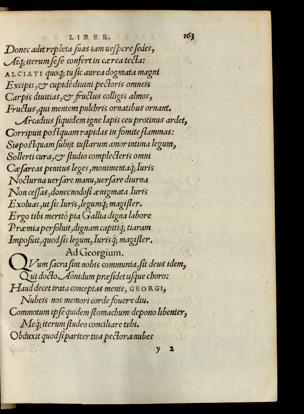 LIBER. 163
Donec adit repleta suas iam uespere sedes,
Atq; iterum sese confert in cærea tecta:
ALCIATI quoq; tu sic aurea dogmata magni
Excipis, & cupidè diuini pectoris omneis
Carpis diuitias, & fructus colligis almos,
Fructus, qui mentem pulchris ornatibus ornant.
Arcadius siquidem igne lapis ceu protinus ardet,
Corripuit postquam rapidas in fomite flammas:
Sic postquam subijt tustarum amor intima legum,
Sollerti cura, & studio complecteris omni
Cæsareas penitus leges, monimentaq; Iuris
Nocturna uersare manu, uersare diurna
Non cessas, donec nodosi ænigmata Iuris
Exoluas, ut sis Iuris, legumq; magister.
Ergo tibi meritò pia Gallia digna labore
Præmia persoluit, dignam capitiq; tiaram
Imposuit, quod sis legum, Iurisq; magister.
Ad Georgium.
QVum sacra sint nobis communia, sit deus idem,
Qui docto Aonidum præsidet usque choro:
Haud decet irata conceptas mente, GEORGI,
Nubeis nos memori corde fouere diu.
Commotum ipse quidem stomachum depono libenter,
Meq; iterum studeo conciliare tibi.
Obduxit quod si pariter tua pectora nubes
y 2